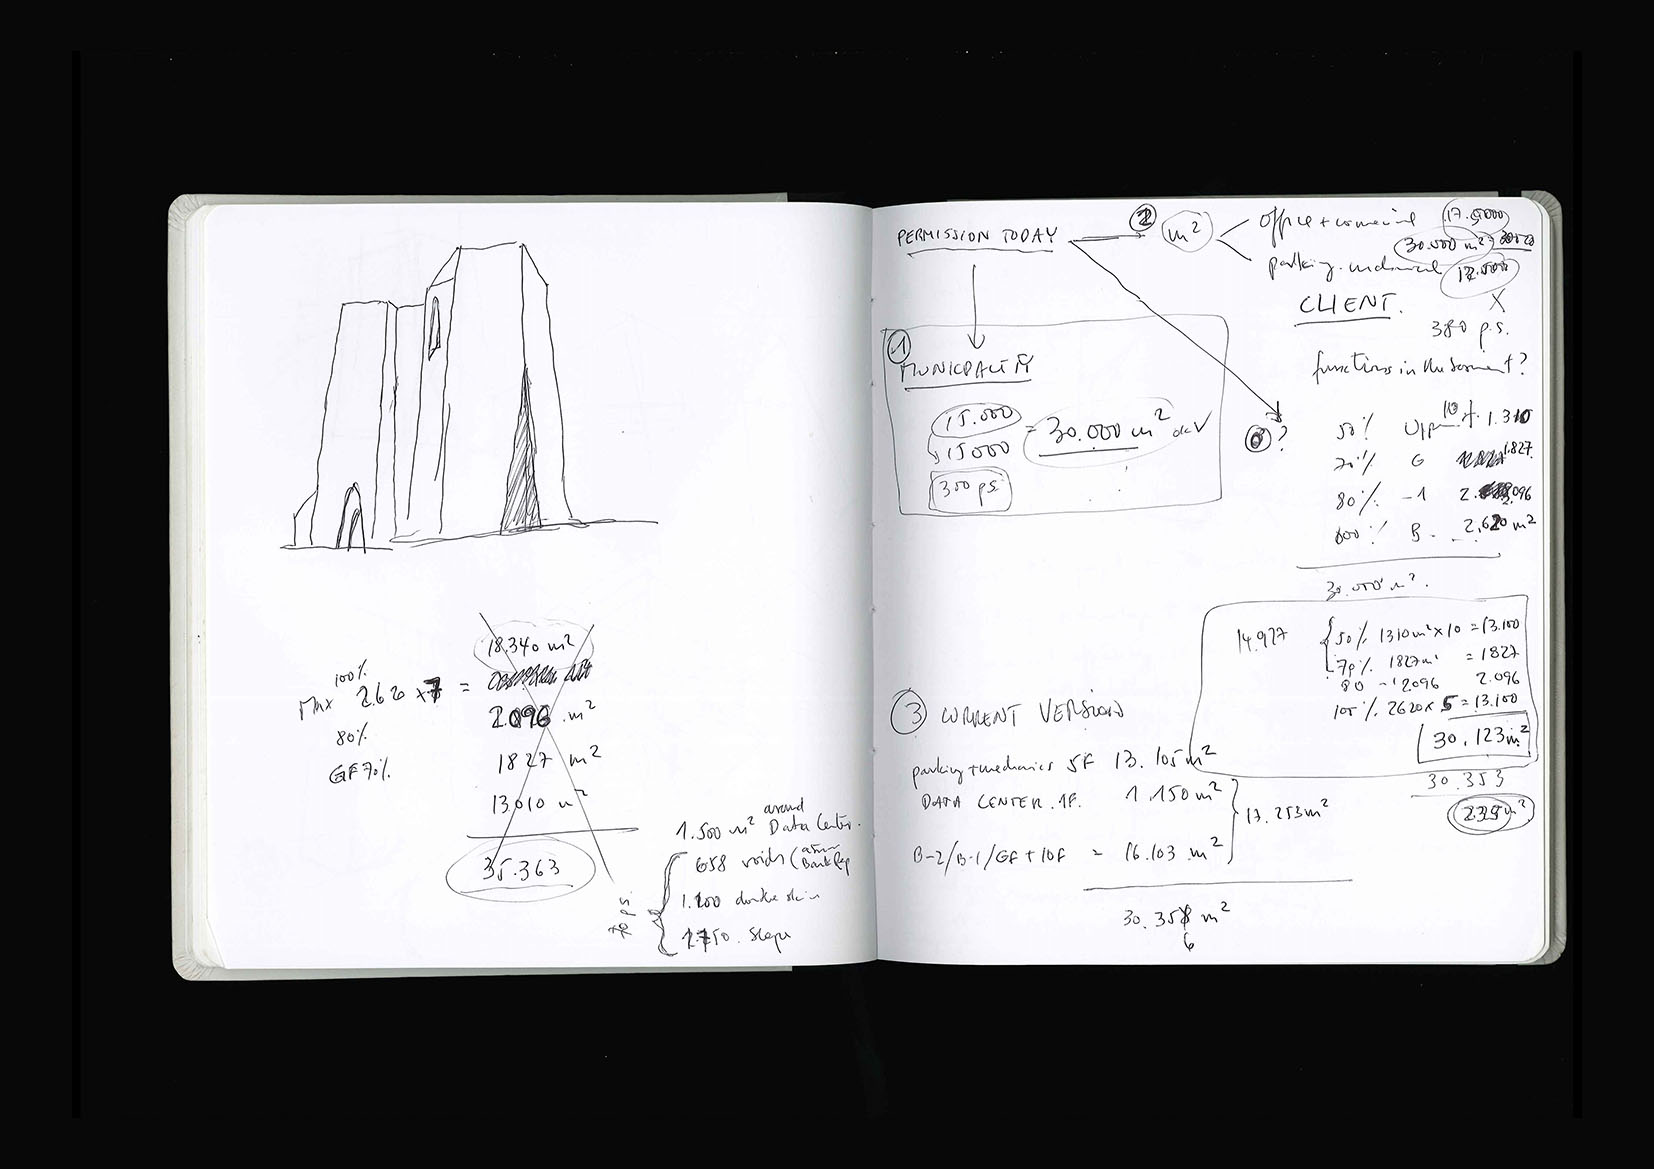 18.340 m²
100%
Max 2620 x 7 =
2.096 m²
80%
1827 m²
GF 70%
13.010 m²
35.363
1.500 m² around Data Center.
658 voids (
1.200 double skin
1.750. slope
70 p.s.
PERMISSION TODAY
2 m²
office + commercial 17.5000
30.000 m²
parking. mechanical
CLIENT. X
380 p.s.
functions in the basement?
1
MUNICIPALITY
15.000
15000
= 30.000 m²
300 ps.
?
50% Upper 10 f. 1.310
70% G 1.827
80% -1 2.096
100% B. 2.620 m²
30.000 m².
14.927
50% 1310 m² x 10 = 13.100
70% 1827 m² = 1827
80 -1 2.096 2.096
100% 2620 x 5 = 13.100
30.123 m²
30.353
225 m²
3 CURRENT VERSION
parking + mechanics 5F 13.105 m²
DATA CENTER. 1F. 1.150 m²
17.253 m²
B-2/B-1/GF + 10F = 16.103 m²
30.358 m²
6